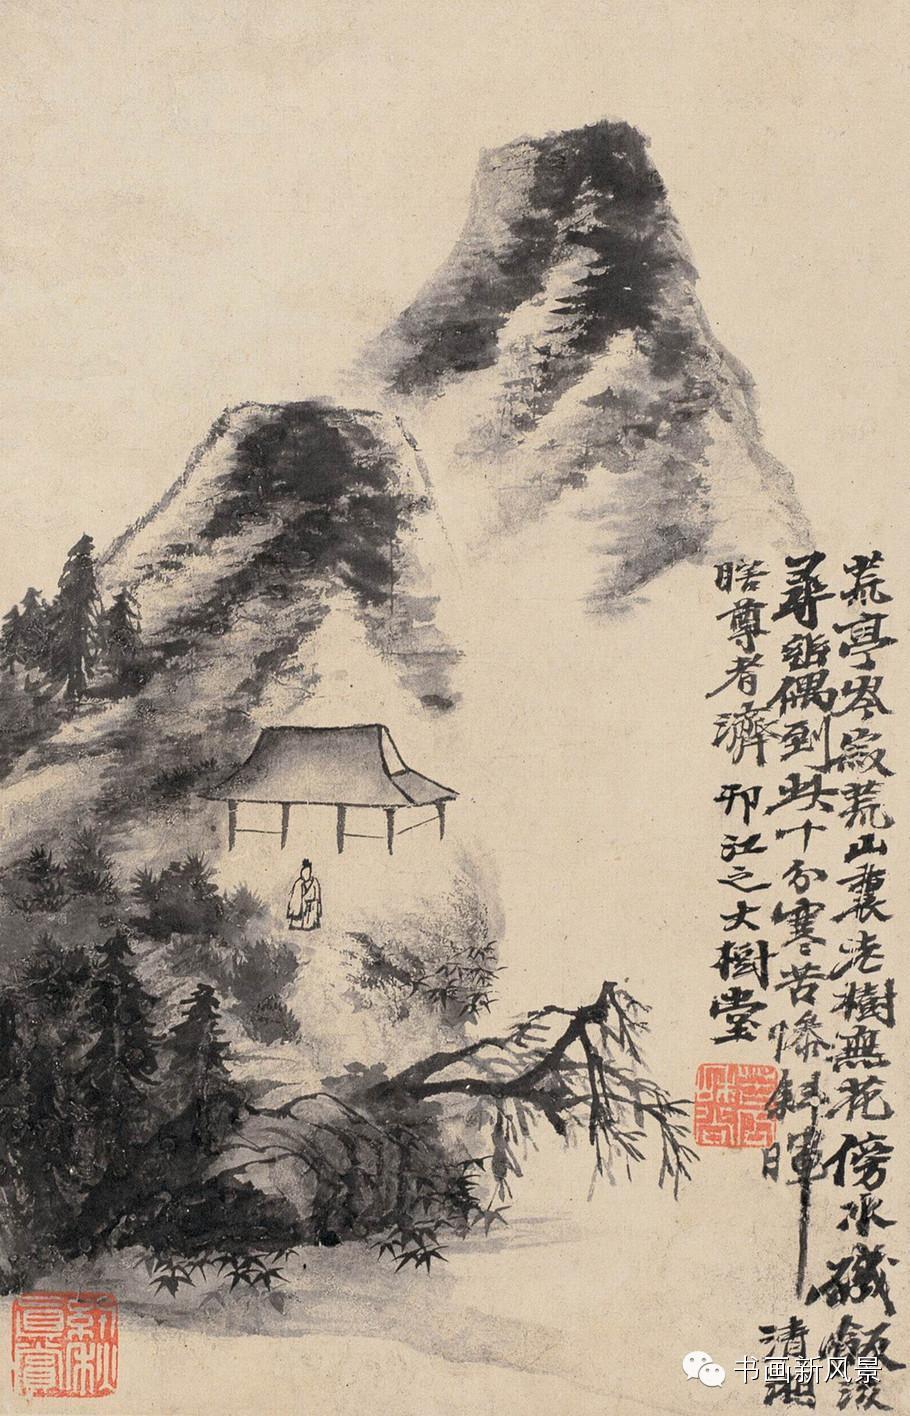 荒亭岑寂荒山裏老樹無花傍水磯飯後
尋幽偶到此十分寒苦惨斜暉
清湘
瞎尊者濟 邗江之大樹堂
书画新风景